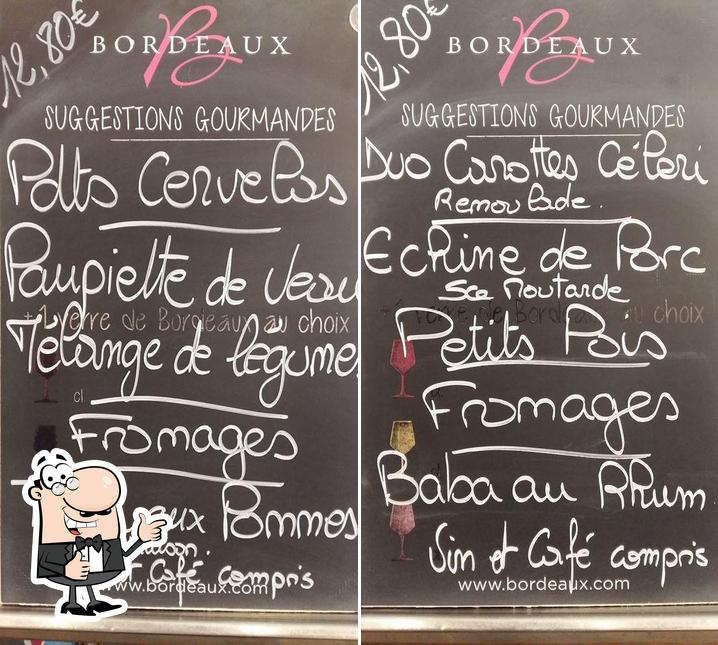 12,80€
BORDEAUX
SUGGESTIONS GOURMANDES
Cervelas
Paupiette de veau
+1 verre de Bordeaux au choix
Mélange de légumes
cl
Fromages
Pommes
Café compris
www.bordeaux.com
12,80€
BORDEAUX
SUGGESTIONS GOURMANDES
Duo Carottes Céleri
Remoulade.
Echine de Porc
Sce Moutarde
+1 verre de Bordeaux au choix
Petits Pois
Fromages
Baba au Rhum
Vin et Café compris
www.bordeaux.com